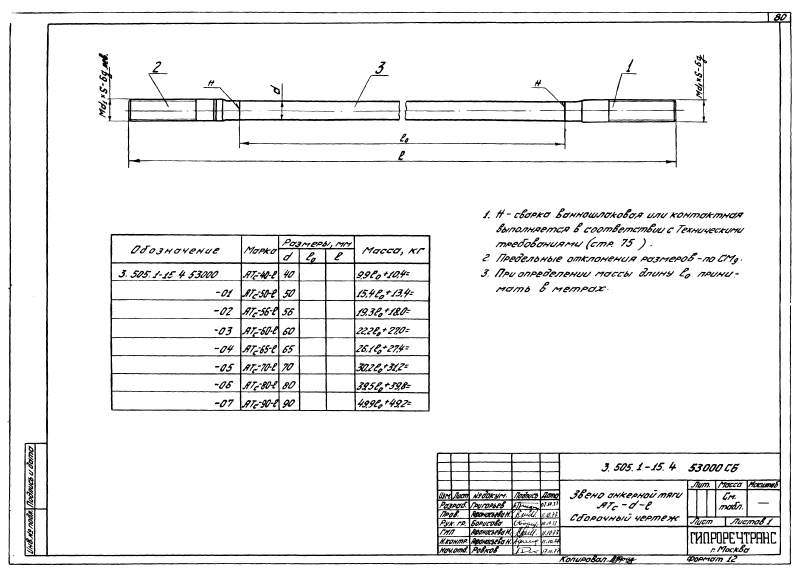 80
2
3
1
Н
Н
d
Md₁×5-6g пов.
Md₁×5-6g
l₀
l
1. Н - сварка ванношлаковая или контактная
выполняется в соответствии с Техническими
требованиями (стр. 75 ).
2. Предельные отклонения размеров - по СМ9.
3. При определении массы длину l₀ прини-
мать в метрах.
Обозначение Марка Размеры, мм Масса, кг
d l₀ l
3.505.1-15.4 53000 АТс-40-l 40 9,9l₀+10,4=
-01 АТс-50-l 50 15,4l₀+13,4=
-02 АТс-56-l 56 19,3l₀+18,0=
-03 АТс-60-l 60 22,2l₀+27,0=
-04 АТс-65-l 65 26,1l₀+27,4=
-05 АТс-70-l 70 30,2l₀+31,2=
-06 АТс-80-l 80 39,5l₀+39,8=
-07 АТс-90-l 90 49,9l₀+49,2=
Инв. № подл. Подпись и дата
3.505.1-15.4 53000 СБ
Изм. Лист № докум. Подпись Дата
Разраб. Григорьев
Пров. Афонасьева Н.
Рук. гр. Борисова
ГИП Афонасьева Н.
Н.контр. Афонасьева Н.
Нач.отд. Ровков
Звено анкерной тяги
АТс-d-l
Сборочный чертеж
Лит. Масса Масштаб
См.
табл. —
Лист Листов 1
ГИПРОРЕЧТРАНС
г. Москва
Копировал
Формат 12